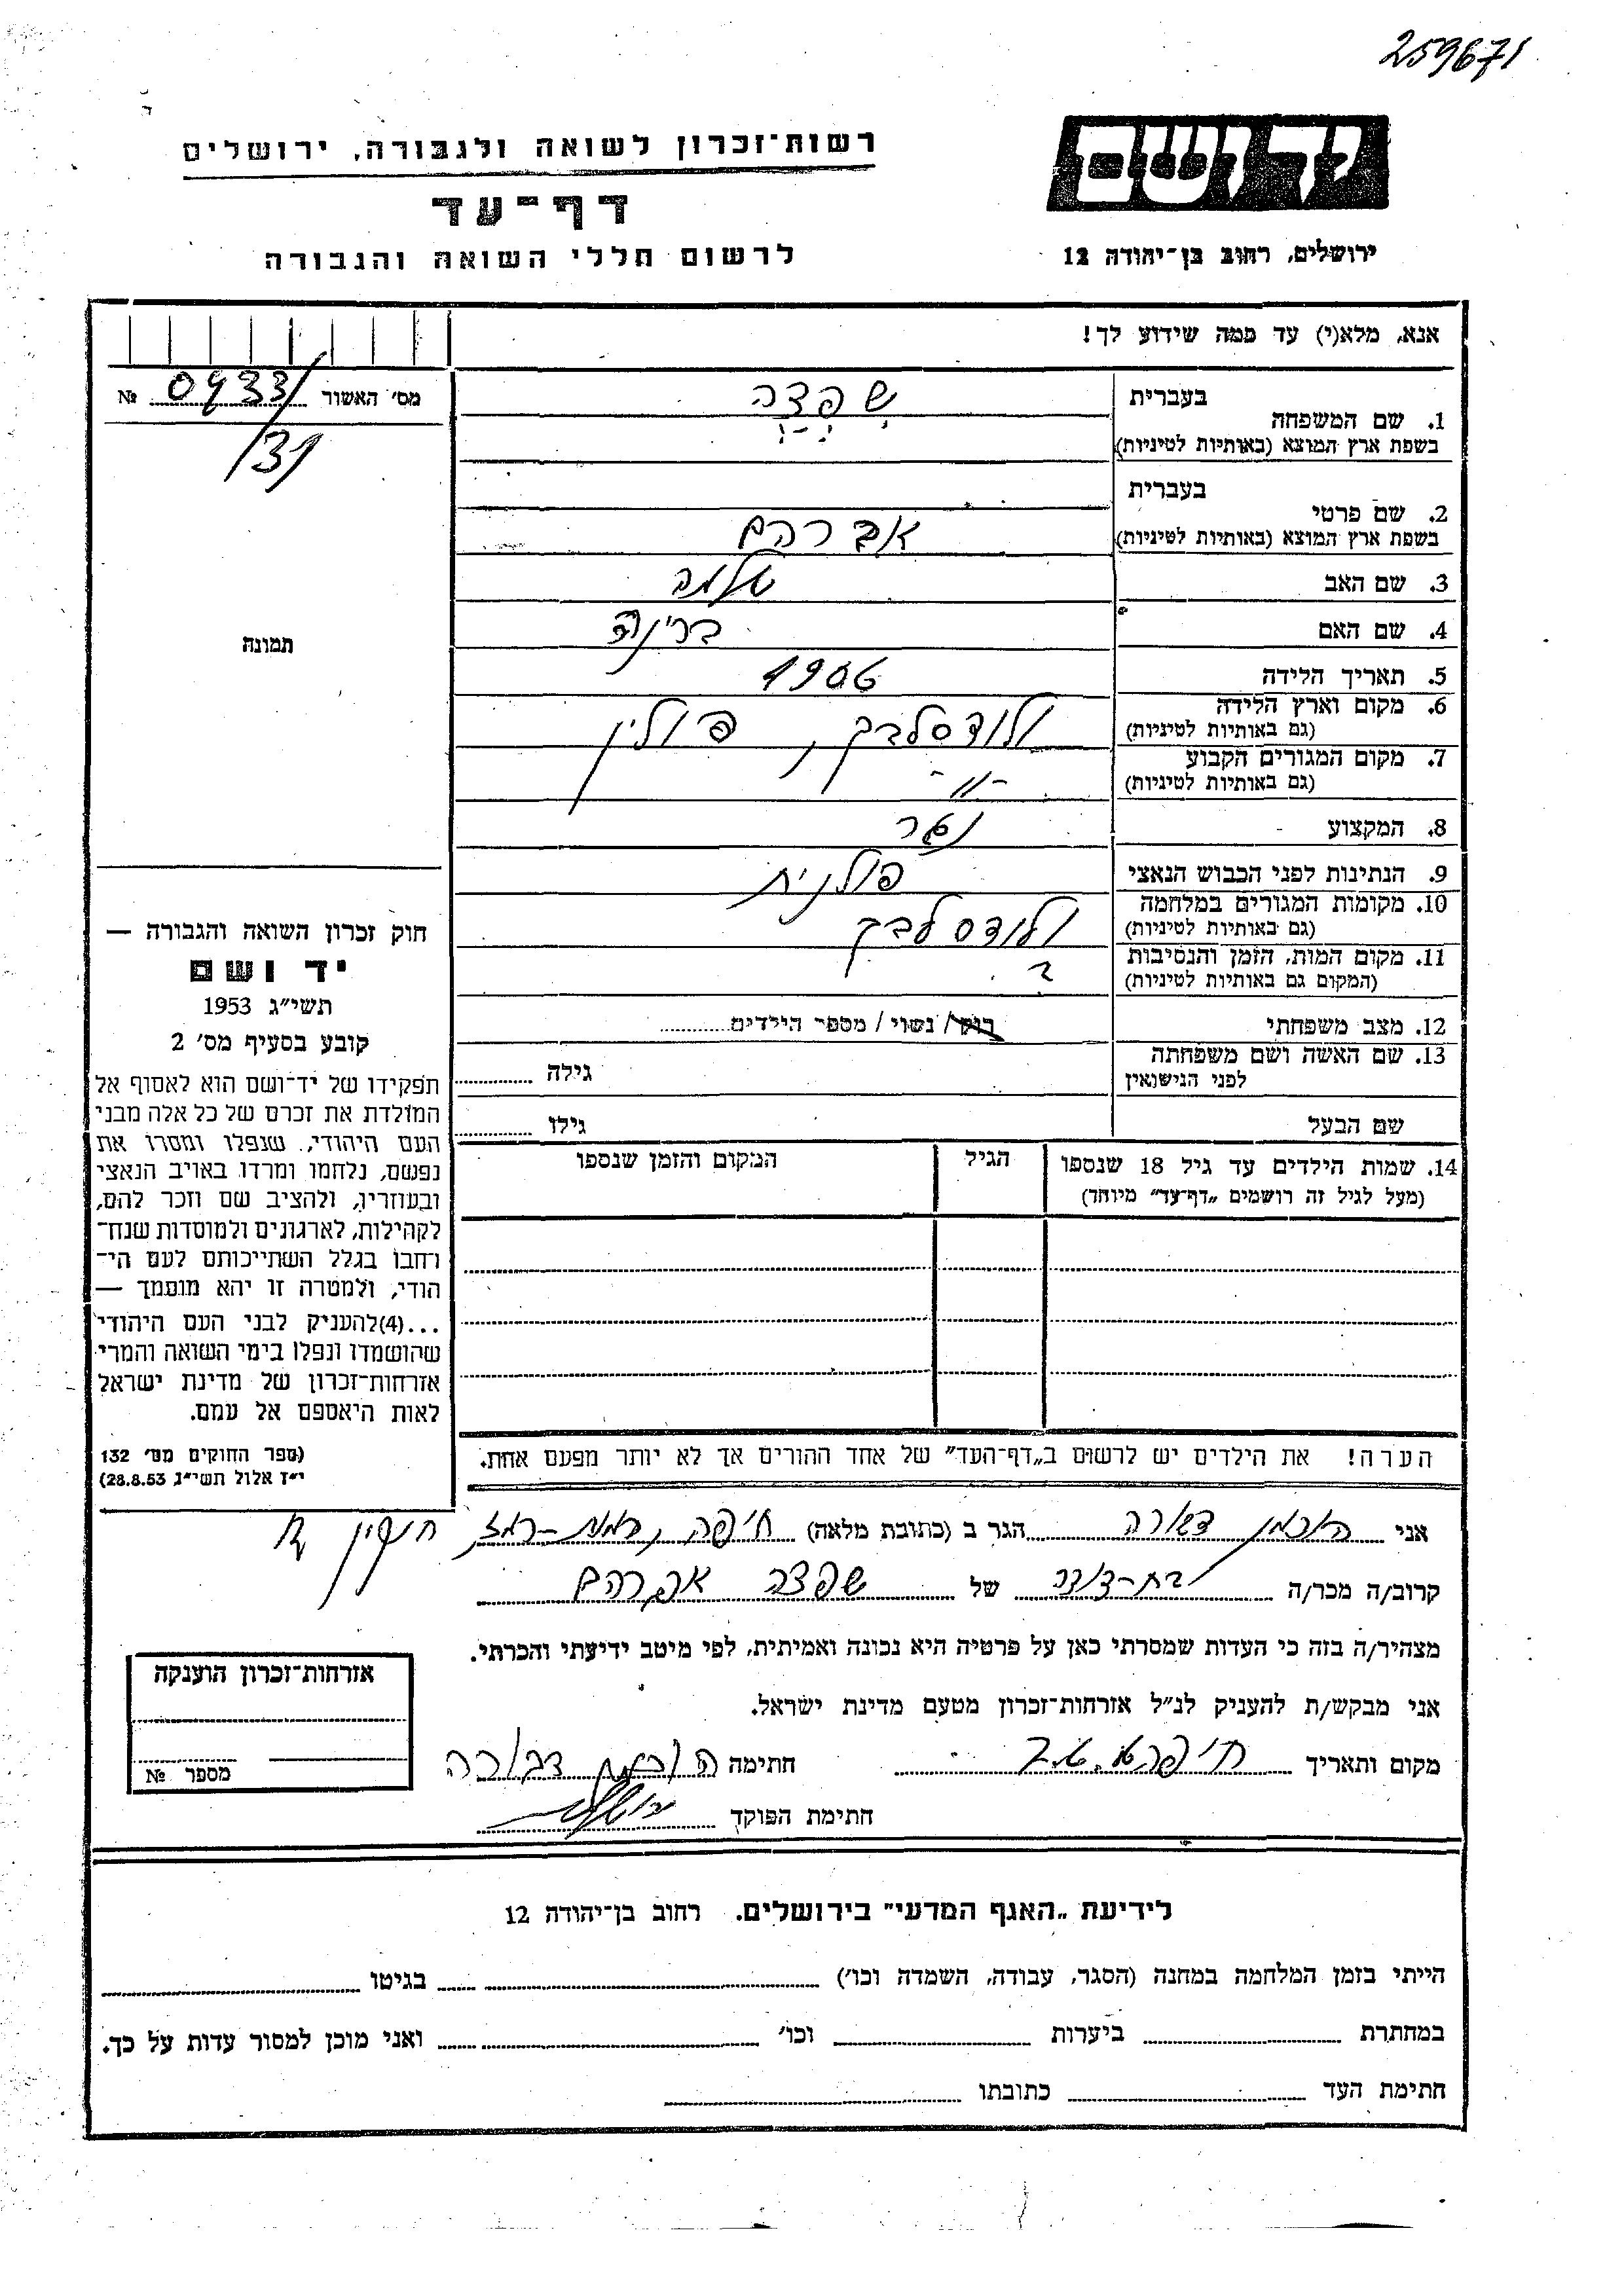 259671
יד ושם
רשות־זכרון לשואה ולגבורה, ירושלים
דף־עד
ירושלים, רחוב בן־יהודה 12
לרשום חללי השואה והגבורה
אנא, מלא(י) עד כמה שידוע לך!
מס׳ האשור № 0433/
/31
תמונה
1. שם המשפחה
בעברית
שפצה
בשפת ארץ המוצא (באותיות לטיניות)
בעברית
2. שם פרטי
בשפת ארץ המוצא (באותיות לטיניות)
אברהם
3. שם האב שלמה
4. שם האם
5. תאריך הלידה 1906
6. מקום וארץ הלידה
(גם באותיות לטיניות)
ולודסלבק, פולין
7. מקום המגורים הקבוע
(גם באותיות לטיניות)
-״-
8. המקצוע
9. הנתינות לפני הכבוש הנאצי פולנית
10. מקומות המגורים במלחמה
(גם באותיות לטיניות)
ולודסלבק
11. מקום המות, הזמן והנסיבות
(המקום גם באותיות לטיניות)
12. מצב משפחתי רווק / נשוי / מספר הילדים
13. שם האשה ושם משפחתה
לפני הנישואין
גילה
שם הבעל גילו
14. שמות הילדים עד גיל 18 שנספו
(מעל לגיל זה רושמים „דף־עד״ מיוחד)
הגיל
המקום והזמן שנספו
הערה! את הילדים יש לרשום ב„דף־העד״ של אחד ההורים אך לא יותר מפעם אחת.
חוק זכרון השואה והגבורה —
יד ושם
תשי״ג 1953
קובע בסעיף מס׳ 2
תפקידו של יד־ושם הוא לאסוף אל
המולדת את זכרם של כל אלה מבני
העם היהודי, שנפלו ומסרו את
נפשם, נלחמו ומרדו באויב הנאצי
ובעוזריו, ולהציב שם וזכר להם,
לקהילות, לארגונים ולמוסדות שנח־
רחבו בגלל השתייכותם לעם הי־
הודי, ולמטרה זו יהא מוסמך —
...(4)להעניק לבני העם היהודי
שהושמדו ונפלו בימי השואה והמרי
אזרחות־זכרון של מדינת ישראל
לאות היאספם אל עמם.
(ספר החוקים מס׳ 132
י״ז אלול תשי״ג 28.8.53)
אני דבורה הגר ב (כתובת מלאה) חיפה, רמת-רמז,
קרוב/ה מכר/ה בת-דודה של שפצה אברהם
מצהיר/ה בזה כי העדות שמסרתי כאן על פרטיה היא נכונה ואמיתית, לפי מיטב ידיעתי והכרתי.
אני מבקש/ת להעניק לנ״ל אזרחות־זכרון מטעם מדינת ישראל.
מקום ותאריך חיפה חתימה דבורה
חתימת הפוקד
אזרחות־זכרון הוענקה
מספר №
לידיעת „האגף המדעי״ בירושלים. רחוב בן־יהודה 12
הייתי בזמן המלחמה במחנה (הסגר, עבודה, השמדה וכו׳) בגיטו
במחתרת ביערות וכו׳ ואני מוכן למסור עדות על כך.
חתימת העד כתובתו